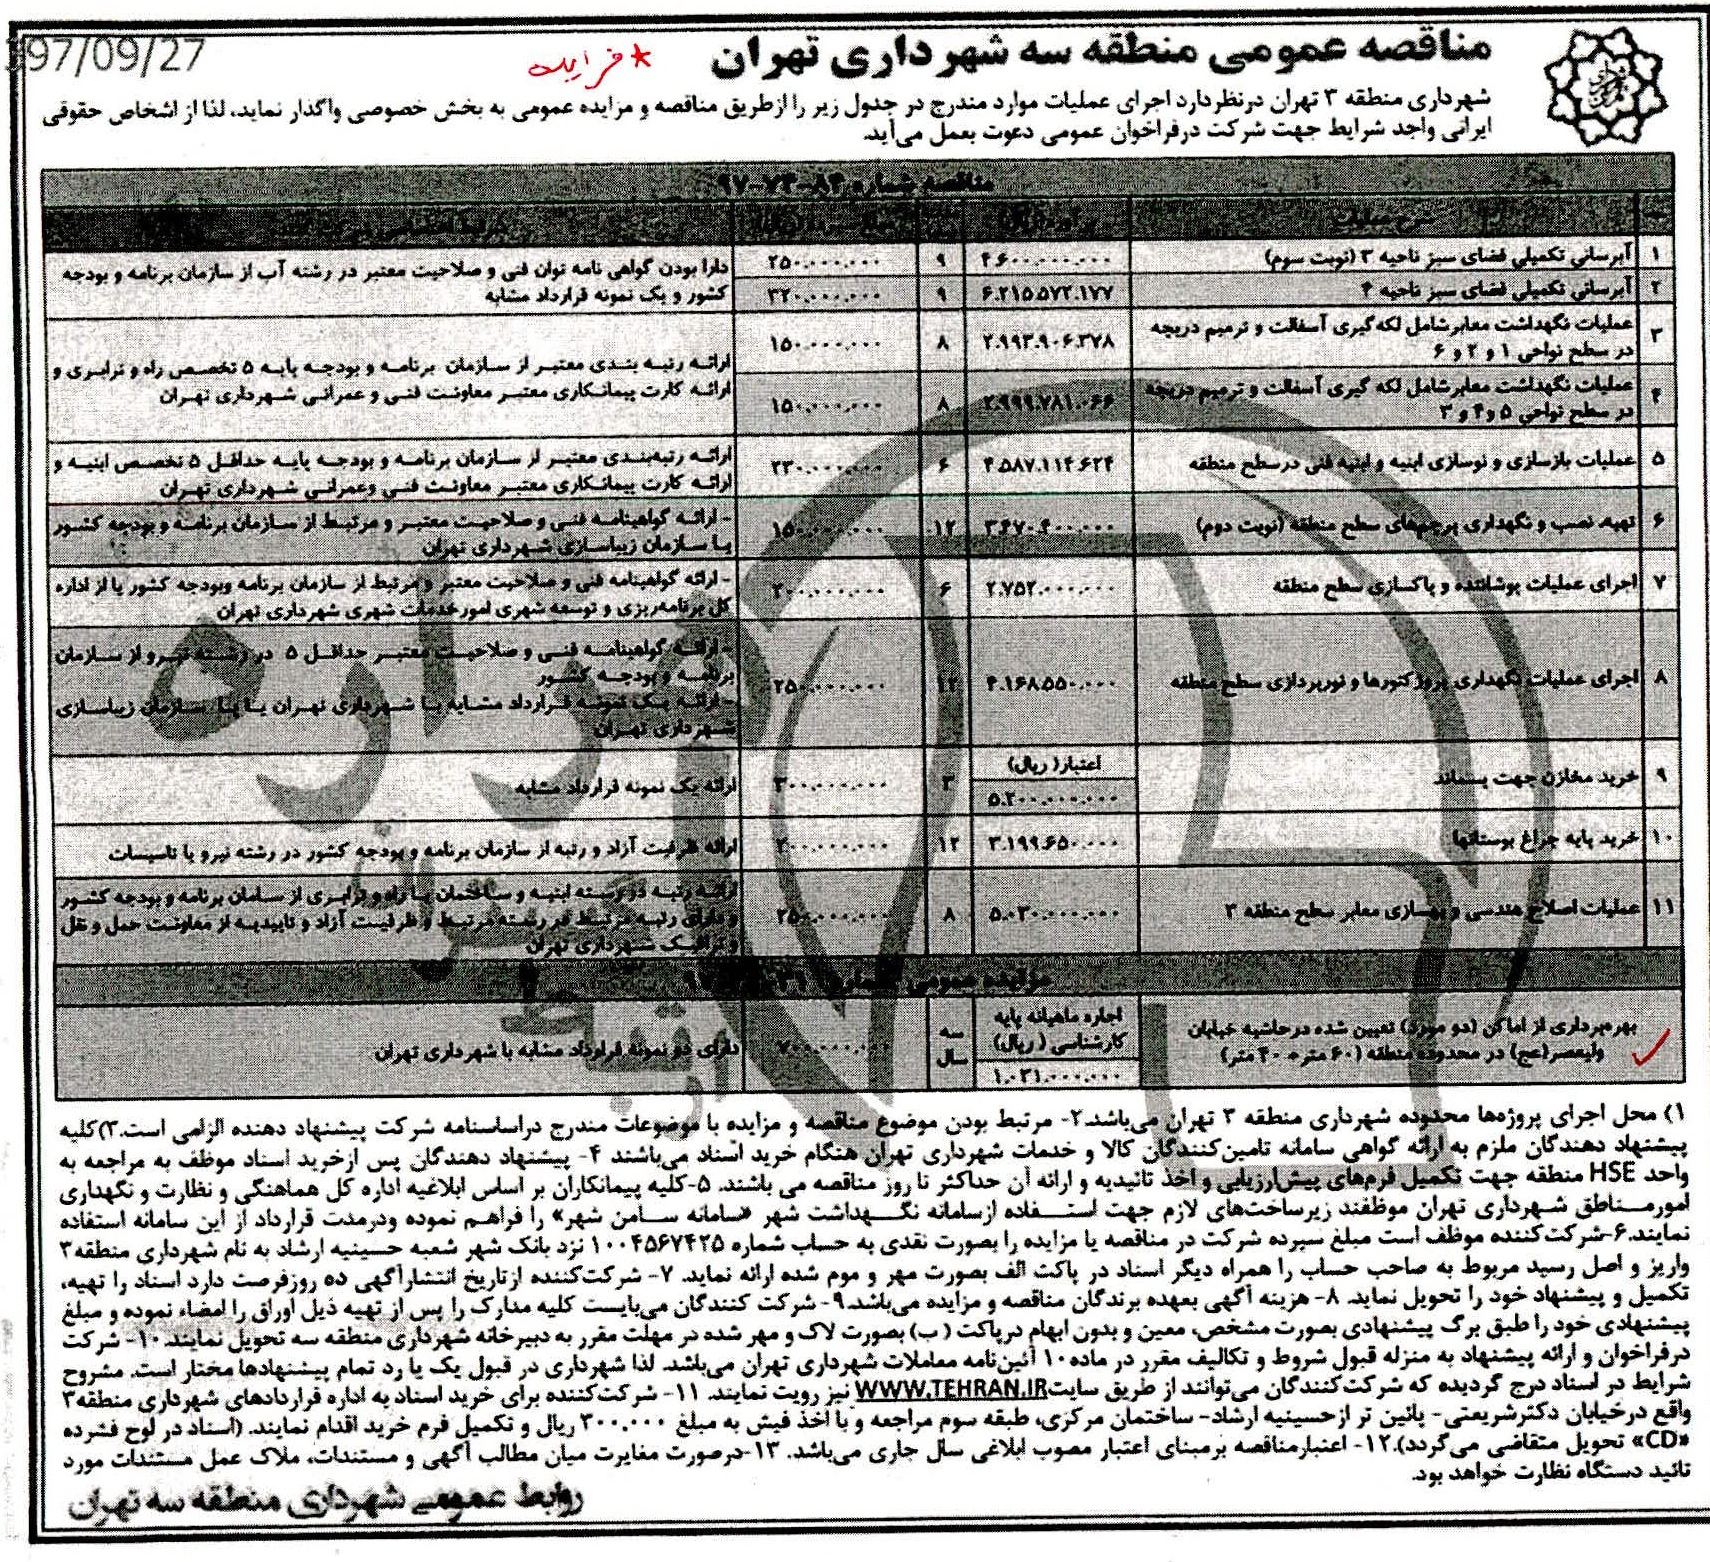 397/09/27
مناقصه عمومی منطقه سه شهرداری تهران
شهرداری منطقه ۳ تهران درنظردارد اجرای عملیات موارد مندرج در جدول زیر را ازطریق مناقصه و مزایده عمومی به بخش خصوصی واگذار نماید، لذا از اشخاص حقوقی
ایرانی واجد شرایط جهت شرکت درفراخوان عمومی دعوت بعمل می‌آید.
مناقصه شماره ۸۴-۷۳-۹۷
۱ آبرسانی تکمیلی فضای سبز ناحیه ۳ (نوبت سوم) ۴.۶۰۰.۰۰۰.۰۰۰ ۹ ۲۵۰.۰۰۰.۰۰۰
دارا بودن گواهی نامه توان فنی و صلاحیت معتبر در رشته آب از سازمان برنامه و بودجه
کشور و یک نمونه قرارداد مشابه
۲ آبرسانی تکمیلی فضای سبز ناحیه ۴ ۶.۲۱۵.۵۷۲.۱۷۷ ۹ ۳۲۰.۰۰۰.۰۰۰
۳ عملیات نگهداشت معابرشامل لکه‌گیری آسفالت و ترمیم دریچه
در سطح نواحی ۱ و ۲ و ۶ ۲.۹۹۳.۹۰۶.۳۷۸ ۸ ۱۵۰.۰۰۰.۰۰۰
ارائه رتبه بندی معتبر از سازمان برنامه و بودجه پایه ۵ تخصص راه و ترابری و
ارائه کارت پیمانکاری معتبر معاونت فنی و عمرانی شهرداری تهران
۴ عملیات نگهداشت معابرشامل لکه گیری آسفالت و ترمیم دریچه
در سطح نواحی ۵ و۴ و ۳ ۲.۹۹۹.۷۸۱.۰۶۶ ۸ ۱۵۰.۰۰۰.۰۰۰
۵ عملیات بازسازی و نوسازی ابنیه و ابنیه فنی درسطح منطقه ۴.۵۸۷.۱۱۴.۶۲۴ ۶ ۲۳۰.۰۰۰.۰۰۰
ارائه رتبه‌بندی معتبر از سازمان برنامه و بودجه پایه حداقل ۵ تخصص ابنیه و
ارائه کارت پیمانکاری معتبر معاونت فنی وعمرانی شهرداری تهران
۶ تهیه، نصب و نگهداری پرچم‌های سطح منطقه (نوبت دوم) ۳.۴۷۰.۴۰۰.۰۰۰ ۱۲ ۱۵۰.۰۰۰.۰۰۰
- ارائه گواهینامه فنی و صلاحیت معتبر و مرتبط از سازمان برنامه و بودجه کشور
یا سازمان زیباسازی شهرداری تهران
۷ اجرای عملیات پوشاننده و پاکسازی سطح منطقه ۲.۷۵۲.۰۰۰.۰۰۰ ۶ ۲۰۰.۰۰۰.۰۰۰
- ارائه گواهینامه فنی و صلاحیت معتبر و مرتبط از سازمان برنامه وبودجه کشور یا از اداره
کل برنامه‌ریزی و توسعه شهری امورخدمات شهری شهرداری تهران
۸ اجرای عملیات نگهداری پروژکتورها و نورپردازی سطح منطقه ۴.۱۶۸.۵۵۰.۰۰۰ ۱۲ ۲۵۰.۰۰۰.۰۰۰
- ارائه گواهینامه فنی و صلاحیت معتبر حداقل ۵ در رشته نیرو از سازمان
برنامه و بودجه کشور
- ارائه یک نمونه قرارداد مشابه با شهرداری تهران یا با سازمان زیباسازی
شهرداری تهران
۹ خرید مخازن جهت پسماند اعتبار( ریال)
۵.۲۰۰.۰۰۰.۰۰۰ ۳ ۳۰۰.۰۰۰.۰۰۰ ارائه یک نمونه قرارداد مشابه
۱۰ خرید پایه چراغ بوستانها ۳.۱۹۹.۶۵۰.۰۰۰ ۱۲ ۲۰۰.۰۰۰.۰۰۰ ارائه ظرفیت آزاد و رتبه از سازمان برنامه و بودجه کشور در رشته نیرو یا تاسیسات
۱۱ عملیات اصلاح هندسی و بهسازی معابر سطح منطقه ۳ ۵.۰۳۰.۰۰۰.۰۰۰ ۸ ۲۵۰.۰۰۰.۰۰۰
ارائه رتبه دو رسته ابنیه و ساختمان یا راه و ترابری از سامان برنامه و بودجه کشور
و دارای رتبه مرتبط در رشته مرتبط و ظرفیت آزاد و تاییدیه از معاونت حمل و نقل
و ترافیک شهرداری تهران
مزایده عمومی شماره
بهره‌برداری از اماکن (دو مورد) تعیین شده درحاشیه خیابان
ولیعصر(عج) در محدوده منطقه (۶۰ متر- ۳۰ متر)
اجاره ماهیانه پایه
کارشناسی ( ریال)
۱.۰۳۱.۰۰۰.۰۰۰
سه
سال
۷۰۰.۰۰۰.۰۰۰ دارای دو نمونه قرارداد مشابه با شهرداری تهران
۱) محل اجرای پروژه‌ها محدوده شهرداری منطقه ۳ تهران می‌باشد.۲- مرتبط بودن موضوع مناقصه و مزایده با موضوعات مندرج دراساسنامه شرکت پیشنهاد دهنده الزامی است.۳)کلیه
پیشنهاد دهندگان ملزم به ارائه گواهی سامانه تامین‌کنندگان کالا و خدمات شهرداری تهران هنگام خرید اسناد می‌باشند ۴- پیشنهاد دهندگان پس ازخرید اسناد موظف به مراجعه به
واحد HSE منطقه جهت تکمیل فرم‌های پیش‌ارزیابی و اخذ تائیدیه و ارائه آن حداکثر تا روز مناقصه می باشند. ۵-کلیه پیمانکاران بر اساس ابلاغیه اداره کل هماهنگی و نظارت و نگهداری
امورمناطق شهرداری تهران موظفند زیرساخت‌های لازم جهت استفاده ازسامانه نگهداشت شهر «سامانه سامن شهر» را فراهم نموده ودرمدت قرارداد از این سامانه استفاده
نمایند.۶-شرکت‌کننده موظف است مبلغ سپرده شرکت در مناقصه یا مزایده را بصورت نقدی به حساب شماره ۱۰۰۴۵۶۷۴۲۵ نزد بانک شهر شعبه حسینیه ارشاد به نام شهرداری منطقه۳
واریز و اصل رسید مربوط به صاحب حساب را همراه دیگر اسناد در پاکت الف بصورت مهر و موم شده ارائه نماید. ۷- شرکت‌کننده ازتاریخ انتشارآگهی ده روزفرصت دارد اسناد را تهیه،
تکمیل و پیشنهاد خود را تحویل نماید. ۸- هزینه آگهی بعهده برندگان مناقصه و مزایده می‌باشد.۹- شرکت کنندگان می‌بایست کلیه مدارک را پس از تهیه ذیل اوراق را امضاء نموده و مبلغ
پیشنهادی خود را طبق برگ پیشنهادی بصورت مشخص، معین و بدون ابهام درپاکت ( ب) بصورت لاک و مهر شده در مهلت مقرر به دبیرخانه شهرداری منطقه سه تحویل نمایند. ۱۰- شرکت
درفراخوان و ارائه پیشنهاد به منزله قبول شروط و تکالیف مقرر در ماده۱۰ آئین‌نامه معاملات شهرداری تهران می‌باشد. لذا شهرداری در قبول یک یا رد تمام پیشنهادها مختار است. مشروح
شرایط در اسناد درج گردیده که شرکت‌کنندگان می‌توانند از طریق سایت WWW.TEHRAN.IR نیز رویت نمایند. ۱۱- شرکت‌کننده برای خرید اسناد به اداره قراردادهای شهرداری منطقه۳
واقع درخیابان دکترشریعتی- پائین تر ازحسینیه ارشاد- ساختمان مرکزی، طبقه سوم مراجعه و با اخذ فیش به مبلغ ۳۰۰.۰۰۰ ریال و تکمیل فرم خرید اقدام نمایند. (اسناد در لوح فشرده
«CD» تحویل متقاضی می‌گردد).۱۲- اعتبارمناقصه برمبنای اعتبار مصوب ابلاغی سال جاری می‌باشد. ۱۳-درصورت مغایرت میان مطالب آگهی و مستندات، ملاک عمل مستندات مورد
تائید دستگاه نظارت خواهد بود.
روابط عمومی شهرداری منطقه سه تهران